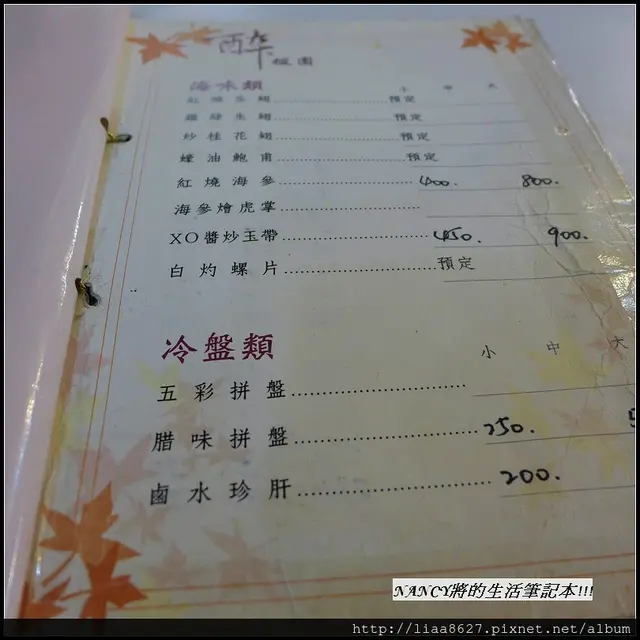 醉楓園
海味類 小 中 大
紅燒生翅 預定
雞絲生翅 預定
炒桂花翅 預定
蠔油鮑甫 預定
紅燒海參 400. 800.
海參燴虎掌
XO醬炒玉帶 450. 900.
白灼螺片 預定
冷盤類 小 中 大
五彩拼盤
腊味拼盤 250. 5
鹵水珍肝 200.
NANCY將的生活筆記本!!!
http://liaa8627.pixnet.net/album